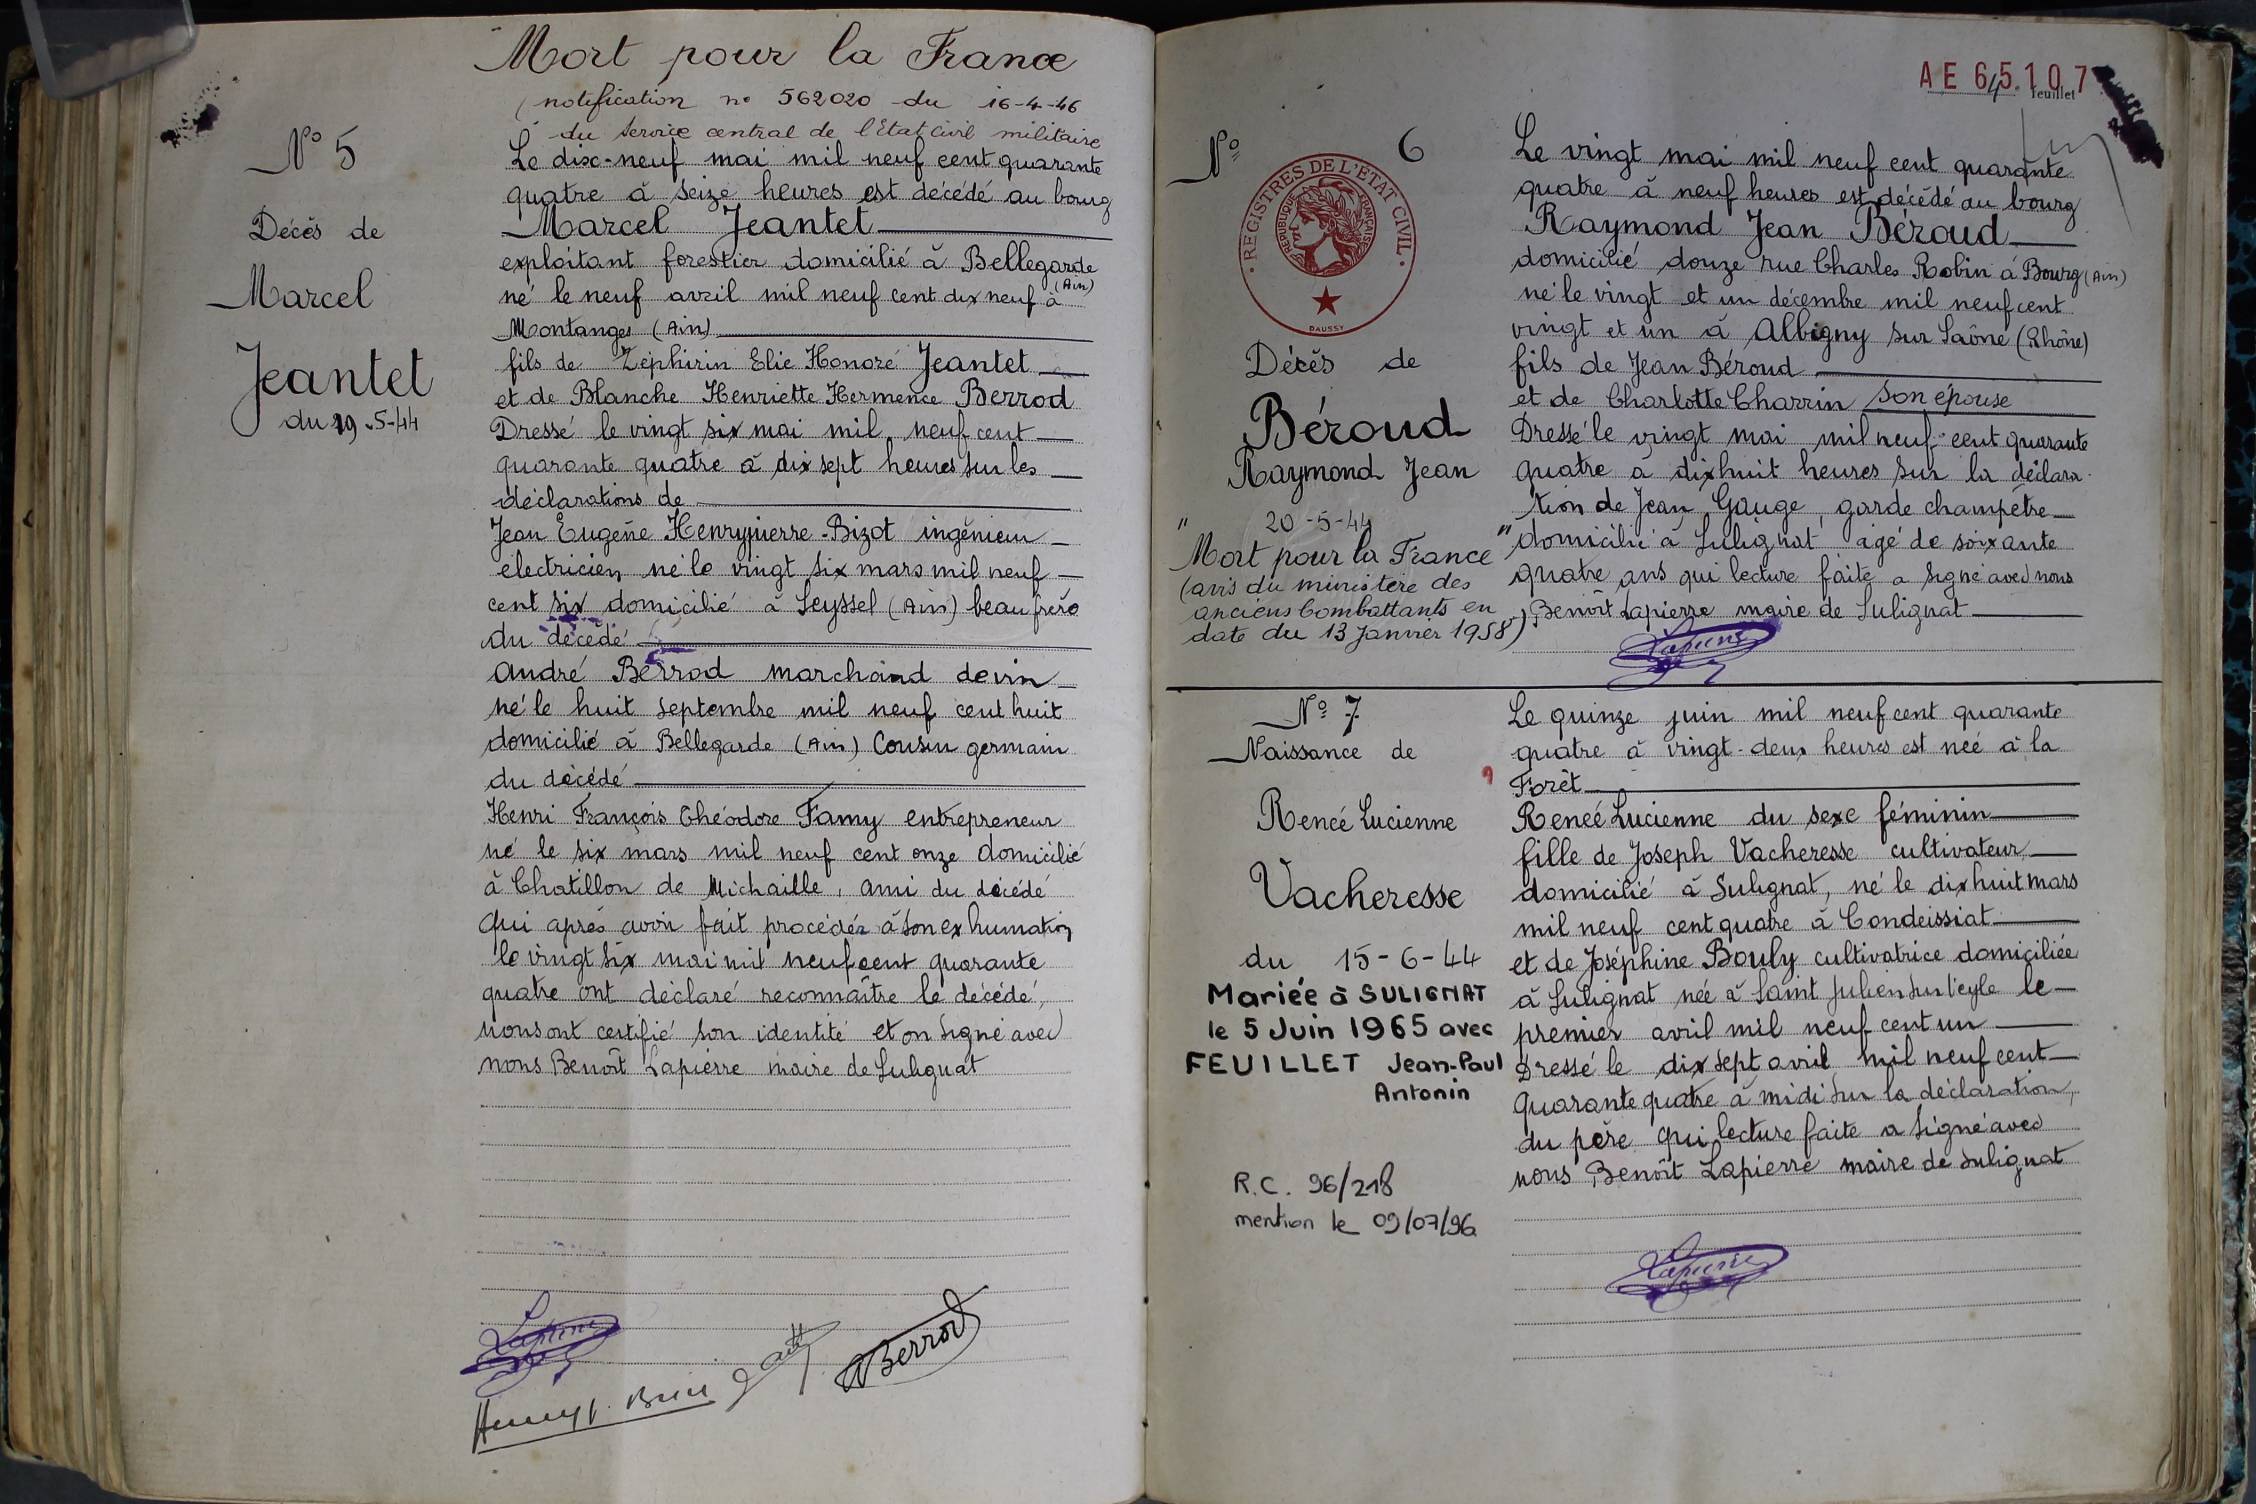 Mort pour la France
(notification n° 562020 du 16-4-46
du Service central de l'Etat Civil militaire
N° 5
Décès de
Marcel
Jeantet
du 19-5-44
Le dix-neuf mai mil neuf cent quarante
quatre à seize heures est décédé au bourg
Marcel Jeantet
exploitant forestier domicilié à Bellegarde
(Ain)
né le neuf avril mil neuf cent dix neuf à
Montanges (Ain)
fils de Zéphirin Elie Honoré Jeantet
et de Blanche Henriette Hermence Berrod
Dressé le vingt six mai mil neuf cent
quarante quatre à dix sept heures sur les
déclarations de
Jean Eugène Henrypierre-Bizot ingénieur
électricien né le vingt six mars mil neuf
cent six domicilié à Seyssel (Ain) beau frère
du décédé
André Berrod marchand de vin
né le huit septembre mil neuf cent huit
domicilié à Bellegarde (Ain) Cousin germain
du décédé
Henri François Théodore Famy entrepreneur
né le six mars mil neuf cent onze domicilié
à Chatillon de Michaille, ami du décédé
qui après avoir fait procéder à son exhumation
le vingt six mai mil neuf cent quarante
quatre ont déclaré reconnaître le décédé,
nous ont certifié son identité et on signé avec
nous Benoît Lapierre maire de Sulignat
Lapierre
ABerrod
AE 645107
feuillet
N° 6
REGISTRES DE L'ETAT CIVIL
REPUBLIQUE FRANCAISE
DAUSSY
Décès de
Béroud
Raymond Jean
20-5-44
"Mort pour la France"
(avis du ministère des
anciens Combattants en
date du 13 Janvier 1958)
Le vingt mai mil neuf cent quarante
quatre à neuf heures est décédé au bourg
Raymond Jean Béroud
domicilié douze rue Charles Robin à Bourg (Ain)
né le vingt et un décembre mil neuf cent
vingt et un à Albigny sur Saône (Rhône)
fils de Jean Béroud
et de Charlotte Charrin son épouse
Dressé le vingt mai mil neuf cent quarante
quatre à dix huit heures sur la déclara-
tion de Jean Gauge, garde champêtre
domicilié à Sulignat agé de soixante
quatre ans qui lecture faite a signé avec nous
Benoît Lapierre maire de Sulignat
Lapierre
N° 7
Naissance de
Renée Lucienne
Vacheresse
du 15-6-44
Mariée à SULIGNAT
le 5 Juin 1965 avec
FEUILLET Jean-Paul
Antonin
R.C. 96/218
mention le 09/07/96
Le quinze juin mil neuf cent quarante
quatre à vingt-deux heures est née à la
Forêt
Renée Lucienne du sexe féminin
fille de Joseph Vacheresse cultivateur
domicilié à Sulignat, né le dix huit mars
mil neuf cent quatre à Condeissiat
et de Joséphine Bouly cultivatrice domiciliée
à Sulignat née à Saint Julien sur Veyle le
premier avril mil neuf cent un
Dressé le dix sept avril mil neuf cent
quarante quatre à midi sur la déclaration,
du père qui lecture faite a signé avec
nous Benoît Lapierre maire de Sulignat
Lapierre